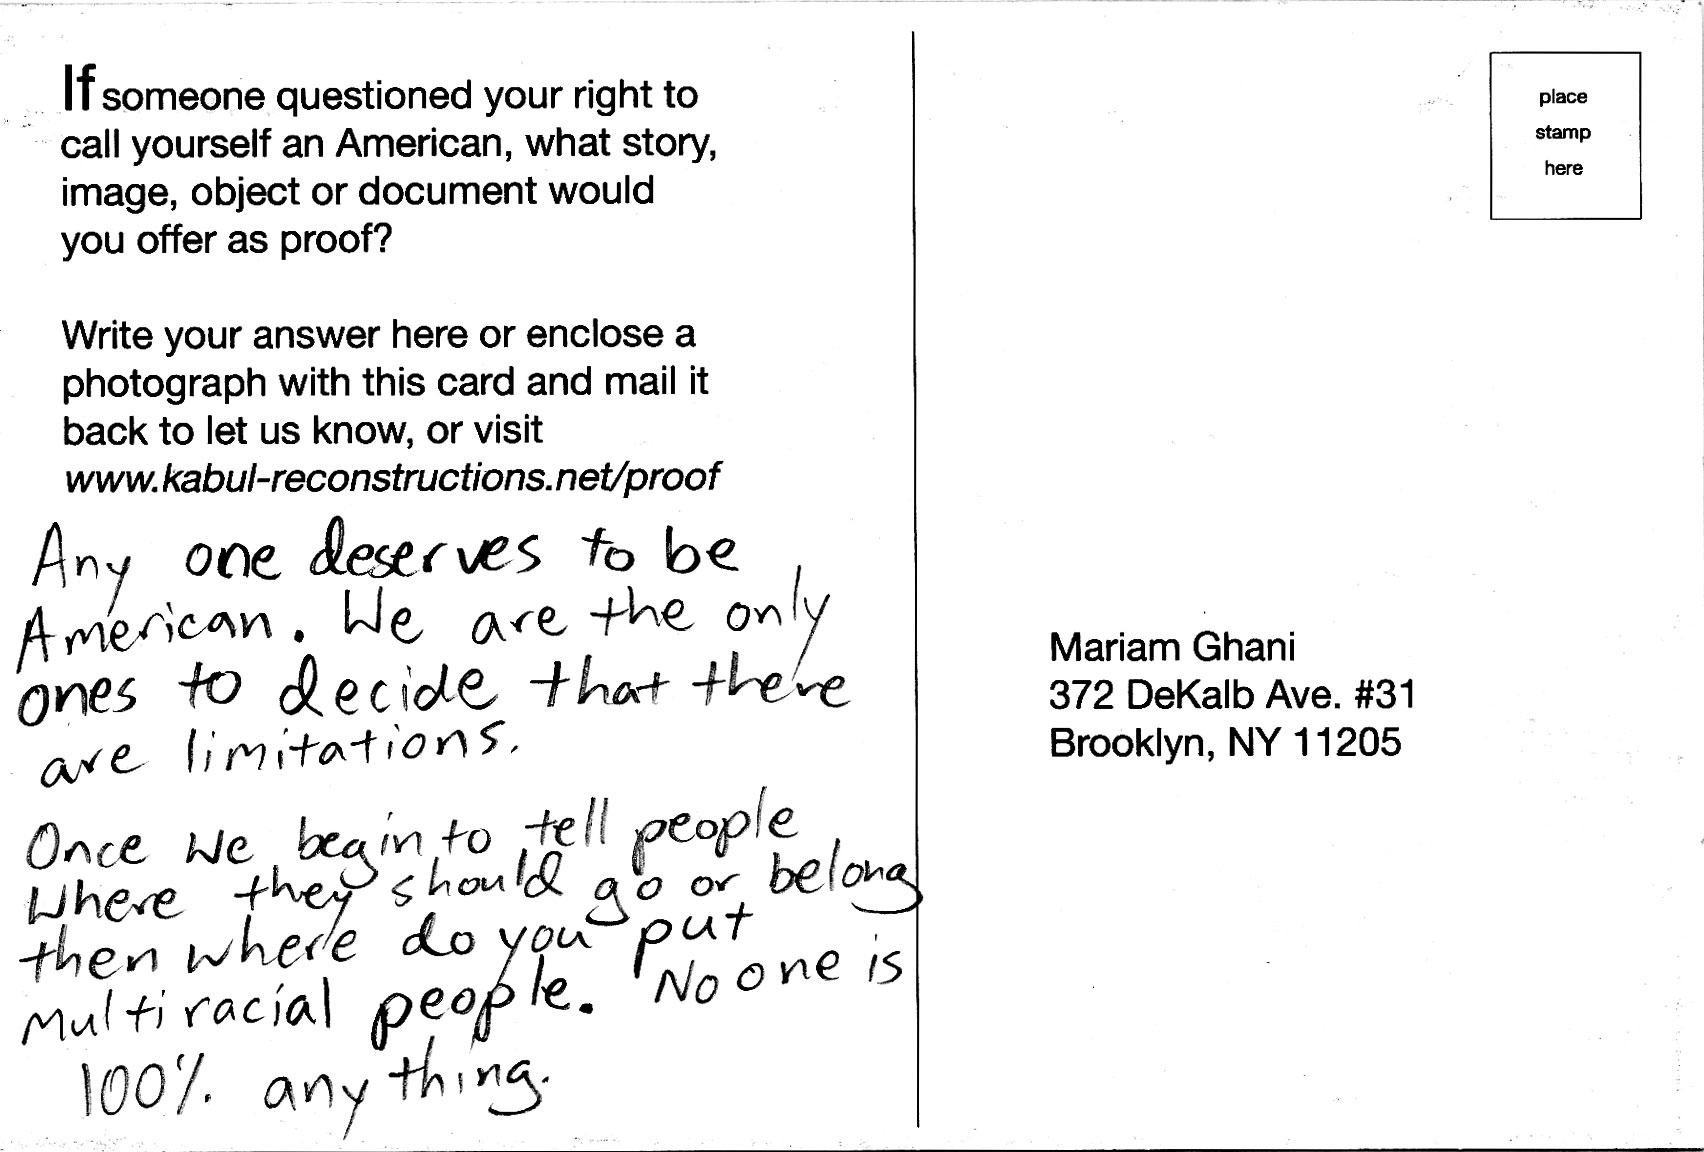 If someone questioned your right to
call yourself an American, what story,
image, object or document would
you offer as proof?
Write your answer here or enclose a
photograph with this card and mail it
back to let us know, or visit
www.kabul-reconstructions.net/proof
Any one deserves to be
American. We are the only
ones to decide that there
are limitations.
Once we begin to tell people
where they should go or belong
then where do you put
multiracial people. No one is
100% any thing.
place
stamp
here
Mariam Ghani
372 DeKalb Ave. #31
Brooklyn, NY 11205